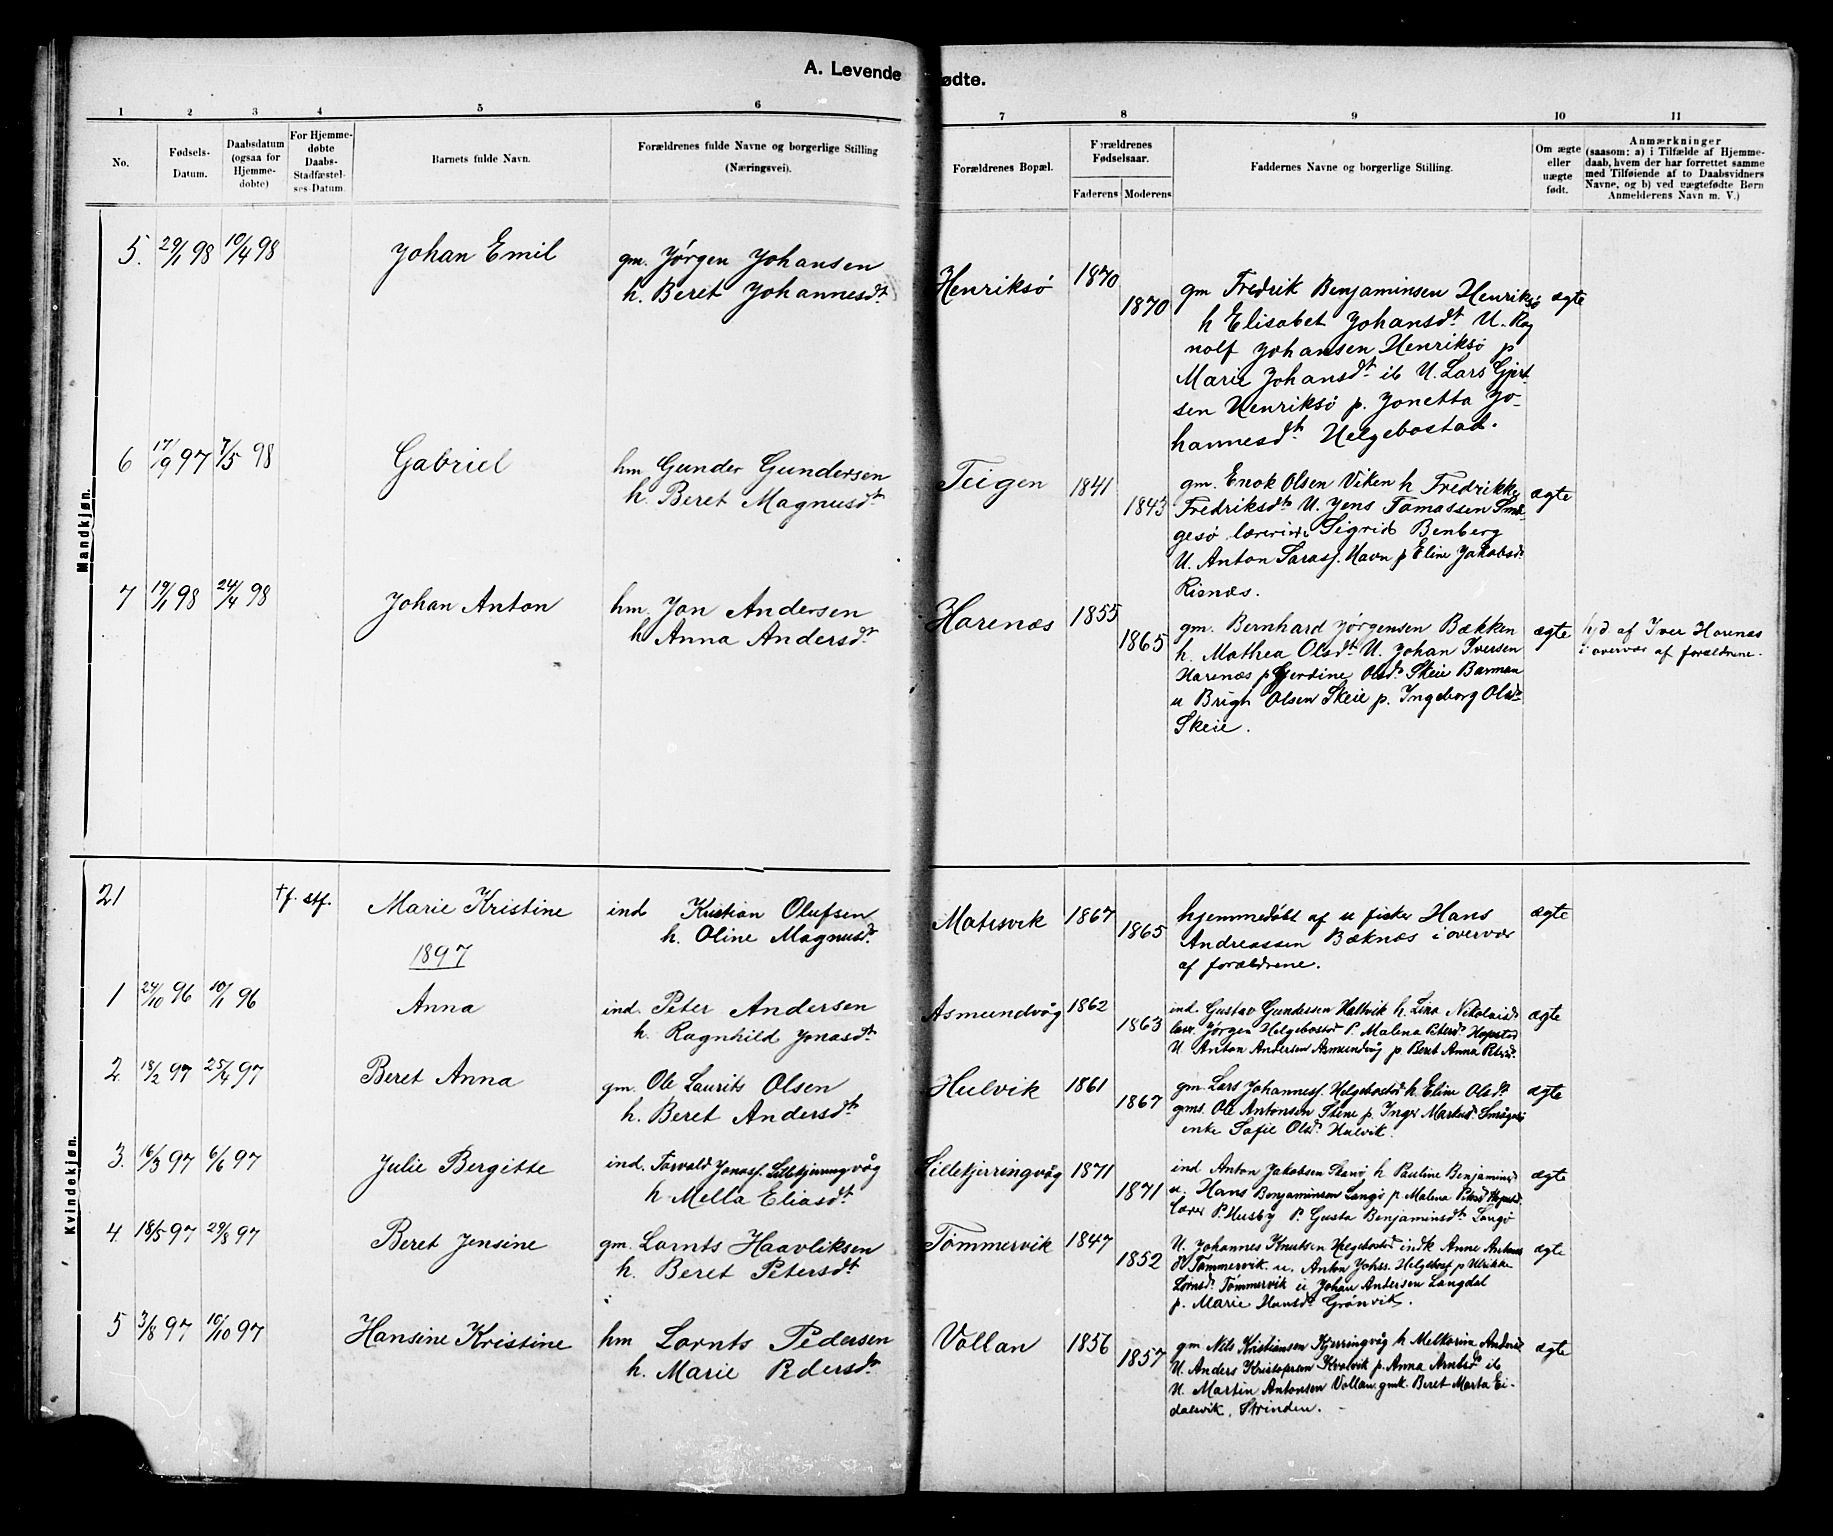 A. Levende
ødte.
1 2 3 4 5 6 7 8 9 10 11
No.
Fødsels-
Datum.
Daabsdatum
(ogsaa for
Hjemme-
døbte)
For Hjemme-
døbte
Daabs-
Stadfæstel-
ses-Datum.
Barnets fulde Navn.
Forældrenes fulde Navne og borgerlige Stilling
(Næringsvei).
Forældrenes Bopæl.
Forældrenes
Fødselsaar.
Faderens
Moderens
Faddernes Navne og borgerlige Stilling.
Om ægte
eller
uægte
født.
Anmærkninger
(saasom: a) i Tilfælde af Hjemme-
daab, hvem der har forrettet samme
med Tilføiende af to Daabsvidners
Navne, og b) ved uægtefødte Børn
Anmelderens Navn m. V.)
Mandkjøn.
5. 29/1 98 10/4 98 Johan Emil
gm. Jørgen Johansen
h. Beret Johannesdt
Henriksø 1870
1870
gm Fredrik Benjaminsen Henriksø
h Elisabet Johansdt U. Rag
nolf Johansen Henriksø p
Marie Johansdt ib U. Lars Gjert
sen Henriksø p. Jonetta Jo-
hannesdt Helgebostad.
ægte
6 17/9 97 7/5 98 Gabriel
hm Gunder Gundersen
h. Beret Magnusdt
Teigen 1841
1843
gm. Enok Olsen Viken h Fredrikke
Fredriksdt U. Jens Tomassen Små-
gesø lærerinde Sigrid Benberg
U. Anton Sarasf. Havn p Eline Jakobsd.
Risnæs.
ægte
7 19/1 98 24/4 98 Johan Anton
hm. Jon Andersen
h Anna Andersdt
Harenæs 1855
1865
gm. Bernhard Jørgensen Bækken
h. Mathea Olsdt U. Johan Iversen
Harenæs p Gjerdine Olsd. Skeie Barman
u Brigt Olsen Skeie p. Ingeborg Olsd.
Skeie.
ægte
hjd. af Iver Harenæs
i overvær af forældrene.
Kvindekjøn.
21 †f. stf. Marie Kristine
ind Kristian Olufsen
h. Oline Magnusd.
Matisvik 1867
1865
hjemmedøbt af u fisker Hans
Andreassen Bæknæs i overvær
af forældrene.
ægte
1897
1 24/10 96 10/1 96 Anna
ind. Peter Andersen
h. Ragnhild Jonasdt
Asmundvåg 1862
1863
ind. Gustav Gundersen Hallvik h. Lina Nikolaid.
lær. Jørgen Helgebostad P. Malena Petersd. Hopstad
U. Anton Andersen Asmundvåg p Beret Anna Petersd.
ægte
2. 18/2 97 25/4 97 Beret Anna
gm. Ole Laurits Olsen
h. Beret Andersdt
Hulvik 1861
1867
gm. Lars Johannesf. Helgebostad h. Eline Olsdt
gms. Ole Antonsen Stene p. Inger Markusd. Smågesø
enke Sofie Olsd. Hulvik.
ægte
3. 16/3 97 6/6 97 Julie Bergitte
ind. Torvald Jonasf. Lillekjerringvåg
h. Mella Eliasdt
Lillekjerringvåg 1871
1871
ind Anton Jakobsen Skarø h Pauline Benjaminsd
u. Hans Benjaminsen Langø p. Malena Petersd Hopstad.
Lærer P. Husby P. Gusta Benjaminsdt Langø
ægte
4. 18/5 97 29/8 97 Beret Jensine
gm. Lornts Haavliksen
h. Beret Petersdt
Tømmervik 1847
1852
U. Johannes Knutsen Helgebostad indk Anne Antons
dt Tømmervik u. Anton Johss. Helgebost p Ulrikke
Lornsd. Tømmervik u Johan Andersen Langdal
p. Marie Hansdt Grønvik.
ægte
5 3/8 97 10/10 97 Hansine Kristine
hm Lornts Pedersen
h. Marie Pedersdt
Vollan 1856
1857
gm Nils Kristiansen Kjerringvåg h Melkorine Andersd
U. Anders Kristofersen Kvalvik p. Anna Arntsd. ib
U. Martin Antonsen Vollan gmk. Beret Marta Ei-
dalsvik, Strinden.
ægte